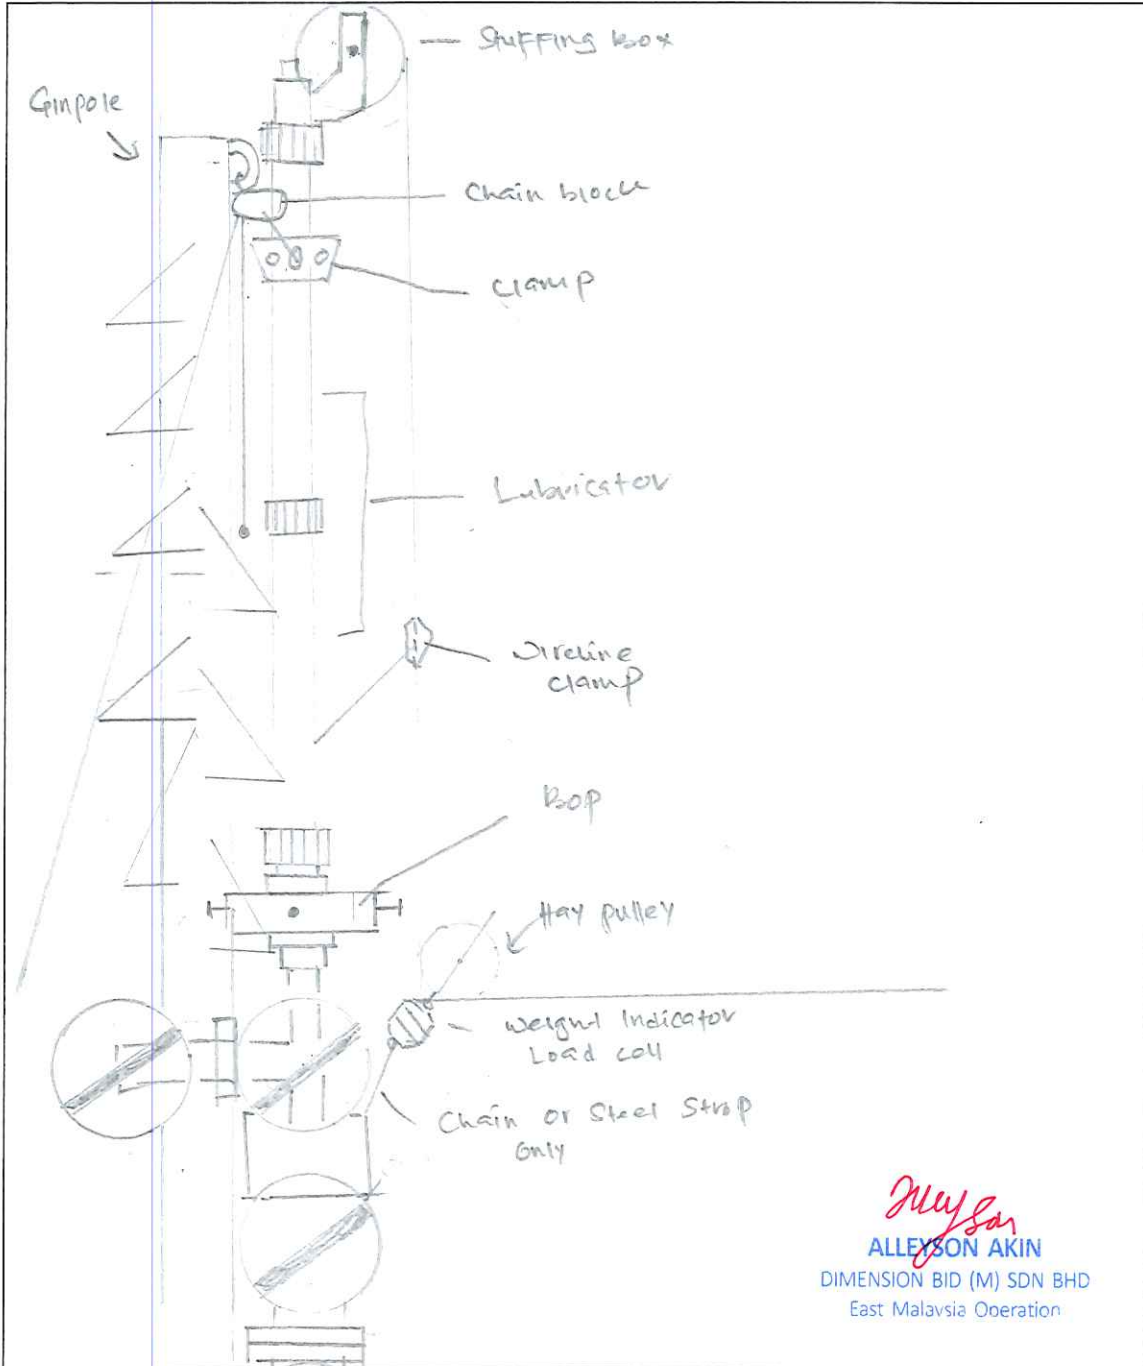 Stuffing Box
Ginpole
Chain block
Clamp
Lubricator
Wireline
clamp
Bop
Hay pulley
Weight Indicator
Load cell
Chain or Steel Strop
Only
ALLEYSON AKIN
DIMENSION BID (M) SDN BHD
East Malaysia Operation